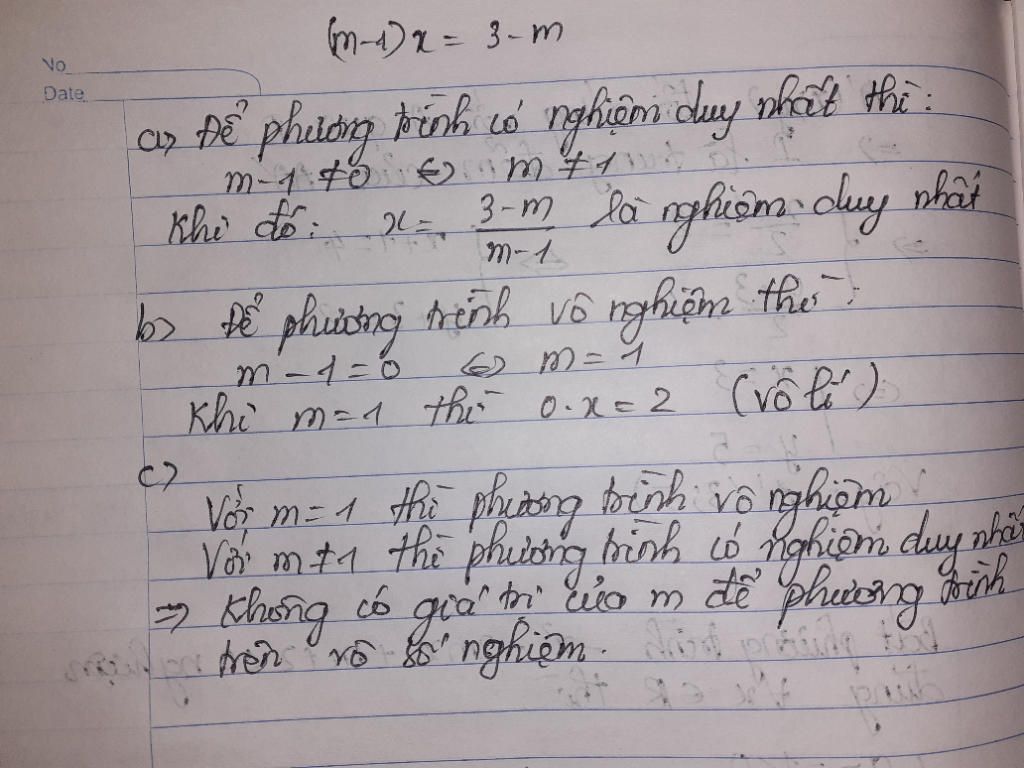 (m-1)x = 3-m
No
Date
a) Để phương trình có nghiệm duy nhất thì:
m-1 ≠ 0 ⇔ m ≠ 1
Khi đó: x = \frac{3-m}{m-1} là nghiệm duy nhất
b) Để phương trình vô nghiệm thì:
m - 1 = 0 ⇔ m = 1
Khi m = 1 thì 0.x = 2 (vô lí)
c)
Với m = 1 thì phương trình vô nghiệm
Với m ≠ 1 thì phương trình có nghiệm duy nhất
⇒ Không có giá trị của m để phương trình
trên vô số nghiệm.